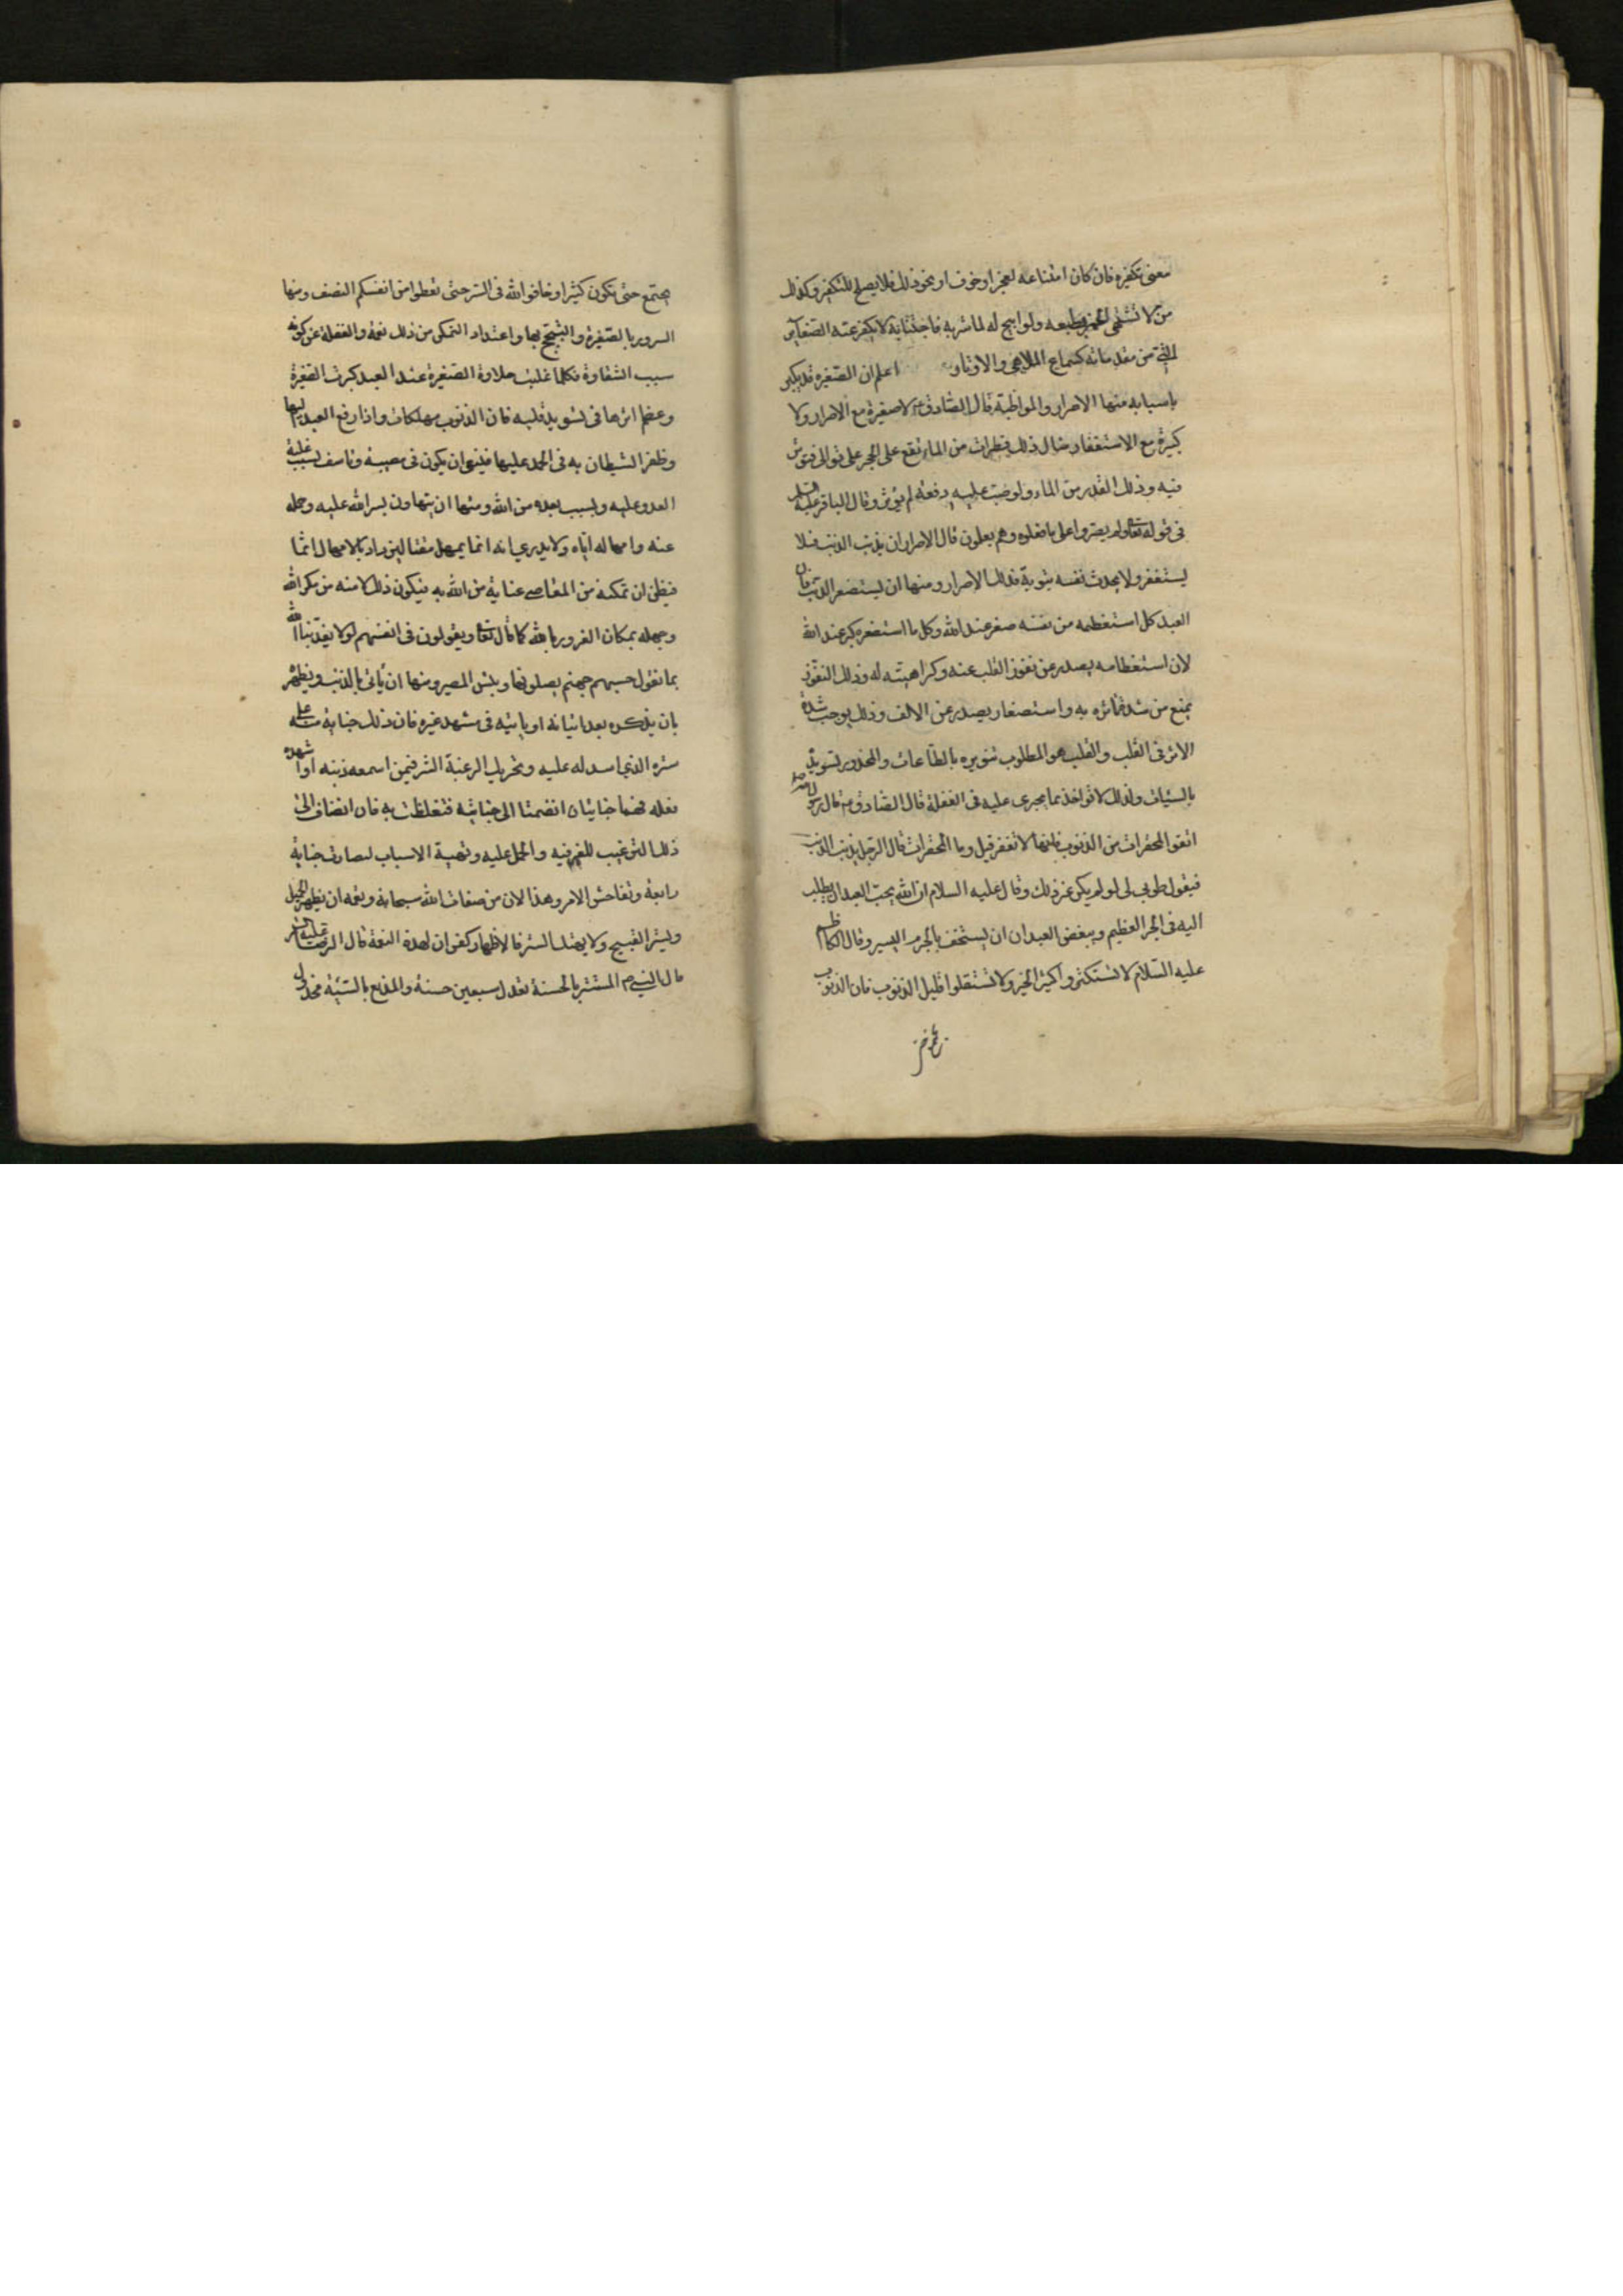 معنى تكفيره فان كان امتناعه لعجز او خوف او نحو ذلك فلا يصلح للتكفير وكذلك
من لا تشتهى الخمر بطبعه ولو ابيح له لما شربه فاجتنابه لا يكفر عنه الصغاير
التى من مقدماته كسماع الملاهى والاوتار اعلم ان الصغيره قد يكبر
باسباب منها الاصرار والمواظبة قال الصادق ع لا صغيرة مع الاصرار ولا
كبيرة مع الاستغفار مثال ذلك قطرات من الماء تقع على الحجر على توالى فتؤثر
فيه وذلك القدر من الماء ولو ضبت عليه دفعة لم يؤثر وقال الباقر عليه السلم
فى قوله تعالى ولم يصروا على ما فعلوه وهم يعلمون قال الاصرار ان يذنب الذنب فلا
يستغفر ولا يحدث نفسه بتوبة فذلك الاصرار ومنها ان يستصغر الذنب فان
العبد كل استعظمه من نفسه صغر عند الله وكل ما استصغره كبر عند الله
لان استعظامه يصدر عن نفور القلب عنه وكراهيته له وذلك النفور
يمنع من شدة تاثره به واستصغار يصدر عن الالف وذلك يوجب شدة
الاثر فى القلب والقلب هو المطلوب تنويره بالطاعات والمحذور تسويده
بالسيئات ولذلك لا تؤاخذ بما يجرى عليه فى الغفلة قال الصادق ع قال رسول الله ص
اتقوا المحقرات من الذنوب فانها لا تغفر قيل وما المحقرات قال الرجل يذنب الذنب
فيقول طوبى لى لو لم يكن غير ذلك وقال عليه السلام ان الله يحب العبد ان يطلب
اليه فى الجرم العظيم ويبغض العبد ان ان يستخف بالجرم اليسير وقال الكاظم
عليه السلام لا تستكثروا كثير الخير ولا تستقلوا قليل الذنوب فان الذنوب
يجتمع حتى تكون كثيرا وخافوا الله فى السر حتى تعطوا من انفسكم النصف ومنها
السرور بالصغيرة والتبجح بها واعتداد التمكن من ذلك نعمة والغفلة عن كونه
سبب الشقاوة فكلما غلبت حلاوة الصغيرة عند العبد كبرت الصغيرة
وعظم اثرها فى تسويد قلبه فان الذنوب مهلكات واذا وقع العبد اليها
وظفر الشيطان به فى الحمل عليها فينبغى ان يكون فى مصيبة وتاسف بسبب غلبة
العدو عليه وبسبب بعده من الله ومنها ان يتهاون بستر الله عليه وحلمه
عنه وامهاله اياه ولا يدرى انه انما يمهل مقتا ليزداد بالامهال اثما
فيظن ان تمكنه من المعاصى عناية من الله به فيكون ذلك لامنه من مكر الله
وجهله بمكان الغرور بالله كما قال تعالى ويقولون فى انفسهم لولا يعذبنا الله
بما نقول حسبهم جهنم يصلونها وبئس المصير ومنها ان يأتى بالذنب ويظهر
بان يذكره بعد اتيانه او ياتيه فى مشهد غيره فان ذلك جناية منه على
ستره الذى اسدله عليه وتحريك الرغبة الشر فيمن اسمعه ذنبه او اشهده
فعله فهما جنايتان انضمتا الى جنايته فتغلظت به فان انضاف الى
ذلك الترغيب للغير فيه والحمل عليه وتهيئة الاسباب له صارت جناية
رابعة وتفاحش الامر وهذا لان من صفات الله سبحانه ونعمه ان يظهر الجميل
ويستر القبيح ولا يهتك الستر فالاظهار كفران لهذه النعمة قال الرضا عليه السلم
قال النبى ص المستتر بالحسنة تعدل سبعين حسنة والمذيع بالسيئة مخذول